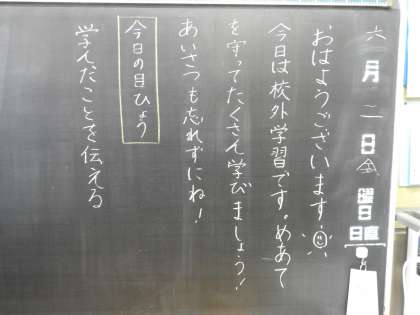 六月二日金曜日
日直
おはようございます
今日は校外学習です。めあて
を守ってたくさん学びましょう！
あいさつも忘れずにね！
今日の目ひょう
学んだことを伝える